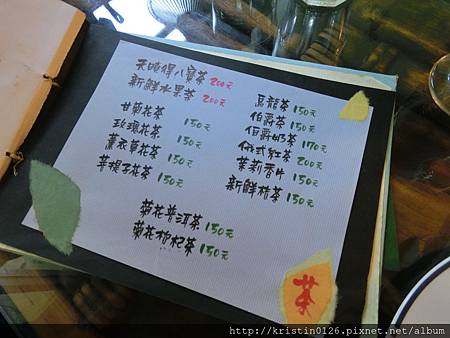 天晴得八寶茶 200元
新鮮水果茶 200元
甘菊花茶 150元
玫瑰花茶 150元
薰衣草花茶 150元
苹梗子花茶 150元
烏龍茶 150元
伯爵茶 150元
伯爵奶茶 170元
俄式紅茶 200元
茉莉香片 150元
新鮮桔茶 150元
菊花普洱茶 150元
菊花枸杞茶 150元
茶
http://kristin0126.pixnet.net/album